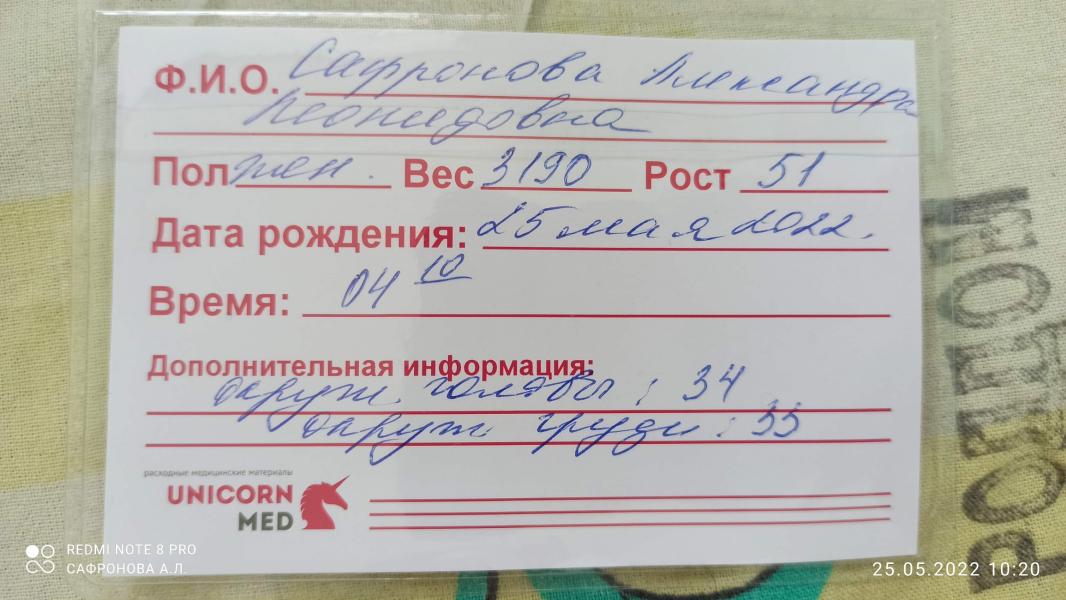 Ф.И.О. Сафронова Александра
Леонидовна
Пол жен. Вес 3190 Рост 51
Дата рождения: 25 мая 2022.
Время: 04 10
Дополнительная информация:
окруж. головы: 34
окруж. груди: 33
расходные медицинские материалы
UNICORN
MED
РОДИЛЬНОЕ
REDMI NOTE 8 PRO
САФРОНОВА А.Л.
25.05.2022 10:20